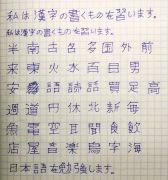 私は漢字の書くものを習います。
私は漢字の書くものを習います。
半南古名多国外前
来東火水百目男
安 読語話買足高
週道円休北新毎
魚電空耳間食飲
店屋音楽 字海
日本語を勉強します。